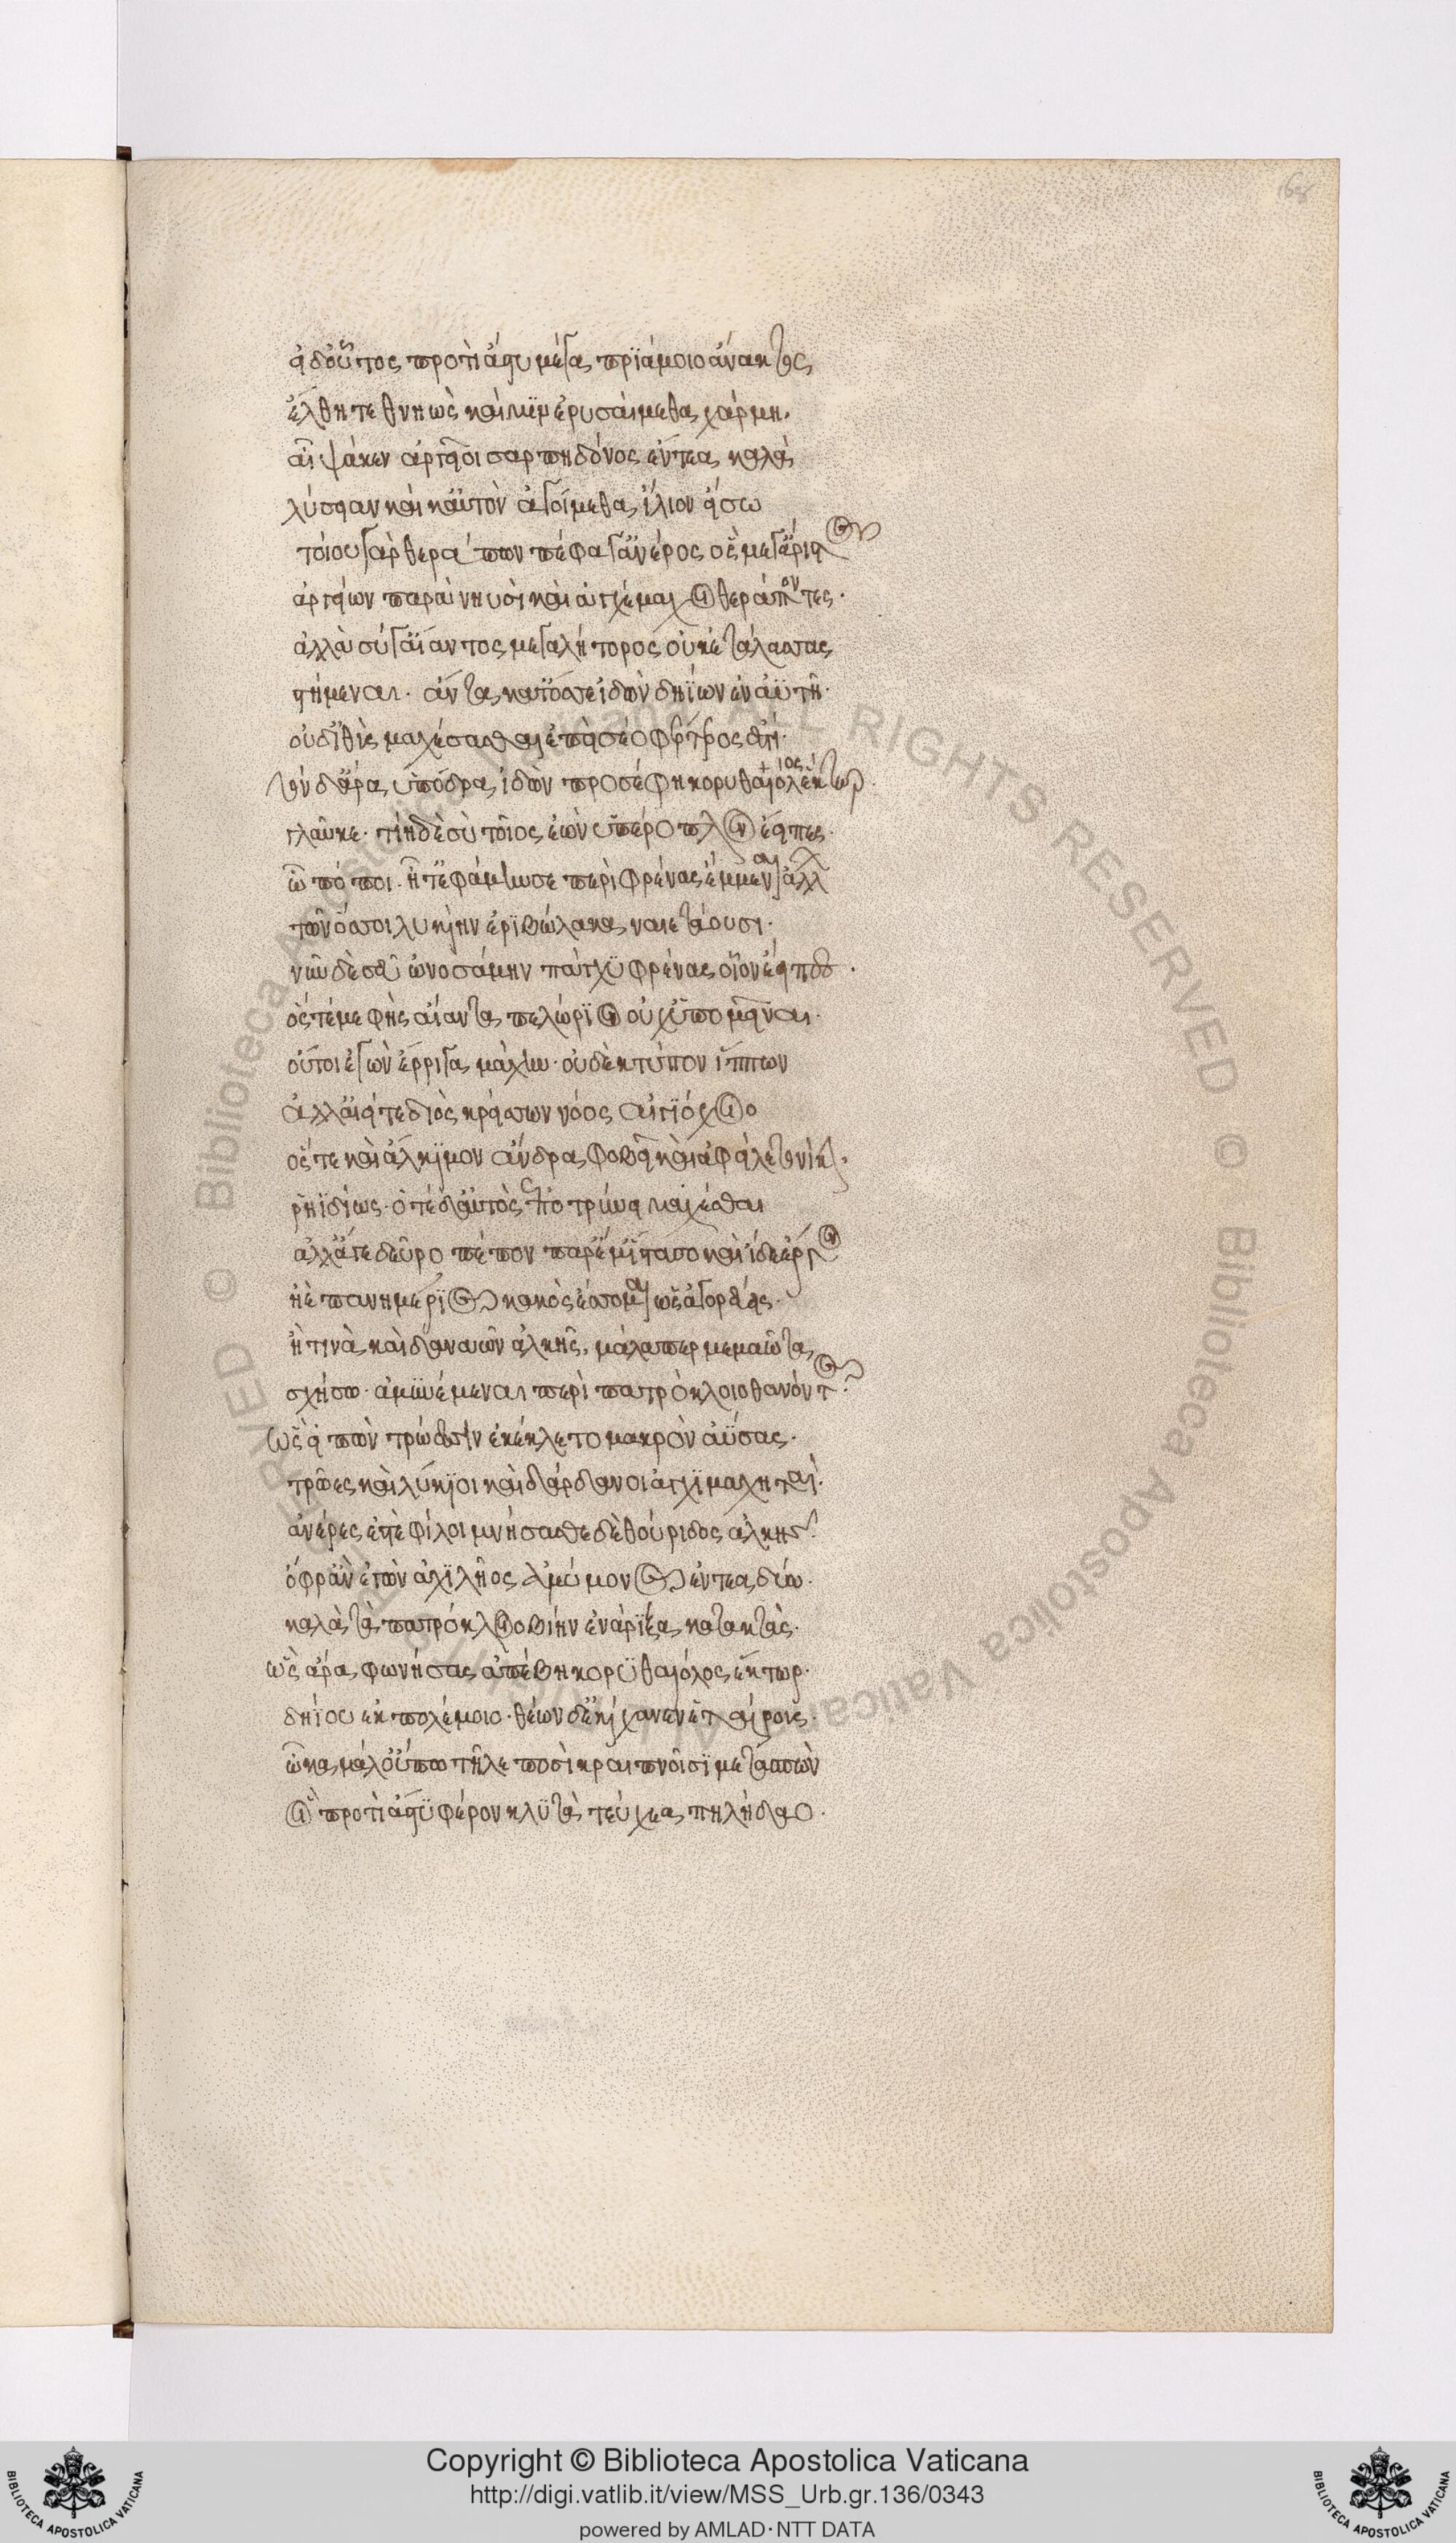 εἰ δ' οὗτος προτὶ ἄστυ μέγα πριάμοιο ἄνακτος
ἔλθῃ τεθνηὼς καί μιν ἐρυσαίμεθα χάρμη.
αἶψά κεν ἀργεῖοι σαρπηδόνος ἔντεα καλὰ
λύσειαν καί κ' αὐτὸν ἀγοίμεθα ἴλιον εἴσω
τοίου γὰρ θεράπων πέφατ' ἀνέρος ὃς μέγ' ἄριστος
ἀργείων παρὰ νηυσὶ καὶ ἀγχέμαχοι θεράποντες.
ἀλλὰ σύ γ' αἴαντος μεγαλήτορος οὐκ ἐτάλασσας
στήμεναι. ἄντα κατ' ὄσσε ἰδὼν δηΐων ἐν ἀϋτῇ.
οὐδ' ἰθὺς μαχέσασθαι ἐπεὶ σέο φέρτερός ἐστι.
τὸν δ' ἄρα ὑπόδρα ἰδὼν προσέφη κορυθαίολος ἕκτωρ.
γλαῦκε. τίη δὲ σὺ τοῖος ἐὼν ὑπέροπλον ἔειπες.
ὢ πόποι. ἦ τ' ἐφάμην σε περὶ φρένας ἔμμεναι ἄλλων
τῶν ὅσσοι λυκίην ἐριβώλακα ναιετάουσι.
νῦν δὲ σεῦ ὠνοσάμην πάγχυ φρένας οἷον ἔειπες.
ὅς τέ με φῂς αἴαντα πελώριον οὐχ ὑπομεῖναι.
οὔτοι ἐγὼν ἔρριγα μάχην. οὐδὲ κτύπον ἵππων
ἀλλ' αἰεί τε διὸς κρείσσων νόος αἰγιόχοιο
ὅς τε καὶ ἄλκιμον ἄνδρα φοβεῖ καὶ ἀφείλετο νίκην.
ῥηϊδίως. ὁτὲ δ' αὐτὸς ἐποτρύνει μαχέσσθαι
ἀλλ' ἄγε δεῦρο πέπον παρ' ἔμ' ἵστασο καὶ ἴδε ἔργον
ἠὲ πανημέριος κακὸς ἔσσομαι ὡς ἀγορεύεις.
ἤ τινα καὶ δαναῶν ἀλκῆς. μάλα περ μεμαῶτα
σχήσω. ἀμυνέμεναι περὶ πατρόκλοιο θανόντος.
ὣς εἰπὼν τρώεσσιν ἐκέκλετο μακρὸν ἀΰσας.
τρῶες καὶ λύκιοι καὶ δάρδανοι ἀγχιμαχηταί.
ἀνέρες ἐστὲ φίλοι μνήσασθε δὲ θούριδος ἀλκῆς.
ὄφρ' ἂν ἐγὼν ἀχιλῆος ἀμύμονος ἔντεα δύω.
καλὰ τὰ πατρόκλοιο βίην ἐνάριξα κατακτάς.
ὣς ἄρα φωνήσας ἀπέβη κορυθαιόλος ἕκτωρ.
δηΐου ἐκ πολέμοιο. θέων δ' ἐκίχανεν ἑταίρους.
ὦκα μάλ' οὔπω τῆλε ποσὶ κραιπνοῖσι μετασπὼν
οἳ προτὶ ἄστυ φέρον κλυτὰ τεύχεα πηλείδαο.
Copyright © Biblioteca Apostolica Vaticana
http://digi.vatlib.it/view/MSS_Urb.gr.136/0343
powered by AMLAD·NTT DATA